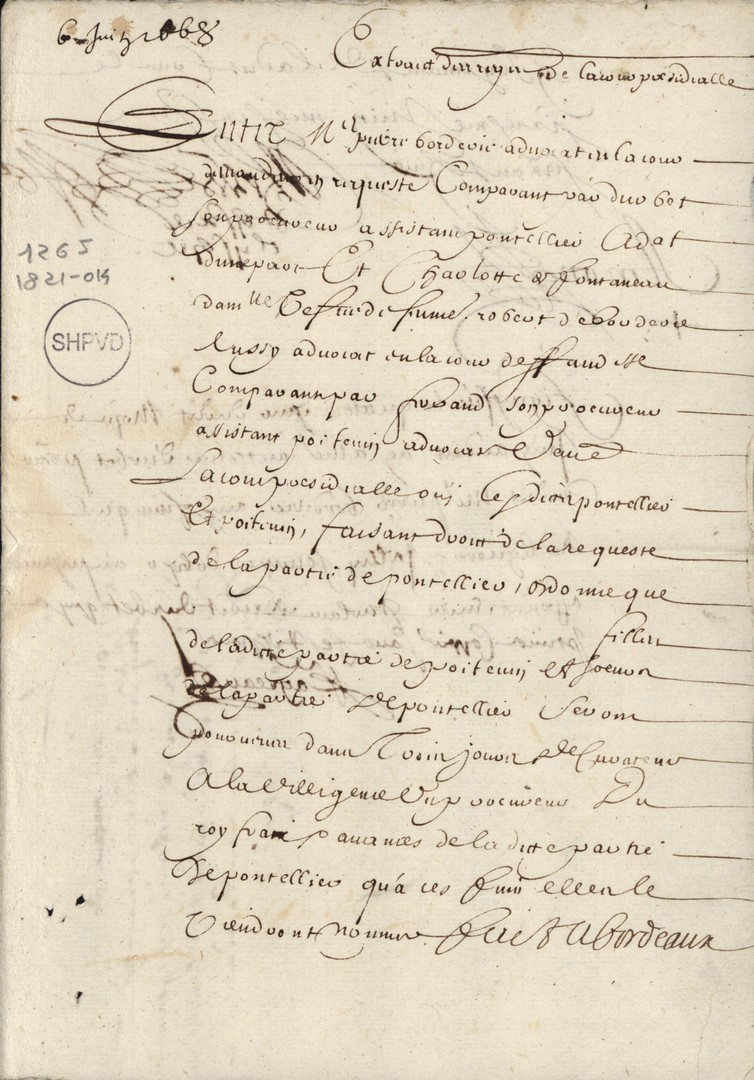 6 Juin 1668
Extraict des reg[...] de la cour presidialle
Entre Me pierre bordevie advocat en la cour
demandeur en requeste Comparant par dubost
son procureur assistant pontellier Adat
d'une part Et Charlotte de fontaneau
damlle Vefve de fume robert de bordevie
[...] advocat en la cour deffandsse
Comparant par [...] son procureur
assistant poitevin advocat d'autre
La cour presidialle ouy lesdicts pontellier
Et poitevin, faisant droict de la requeste
de la partie de pontellier, ordonne que
filles
de la dicte partie de poitevin et soeurs
de la partie de pontellier seront
pourveues dans trois jours de Curateur
A la dilligence du procureur Du
roy frais avances de la dicte partie
de pontellier qu'a ces fins elles le
viendront nommer. faict A bordeaux
1265
1821-014
SHPVD